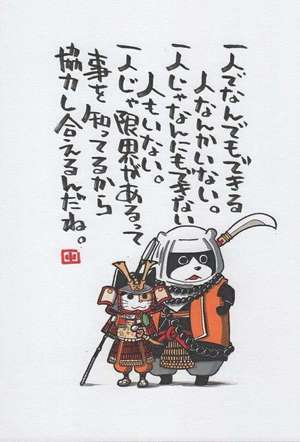 一人でなんでもできる
人なんかいない。
一人じゃなんにもできない
人もいない。
一人じゃ限界があるって
事を知ってるから
協力し合えるんだね。
中